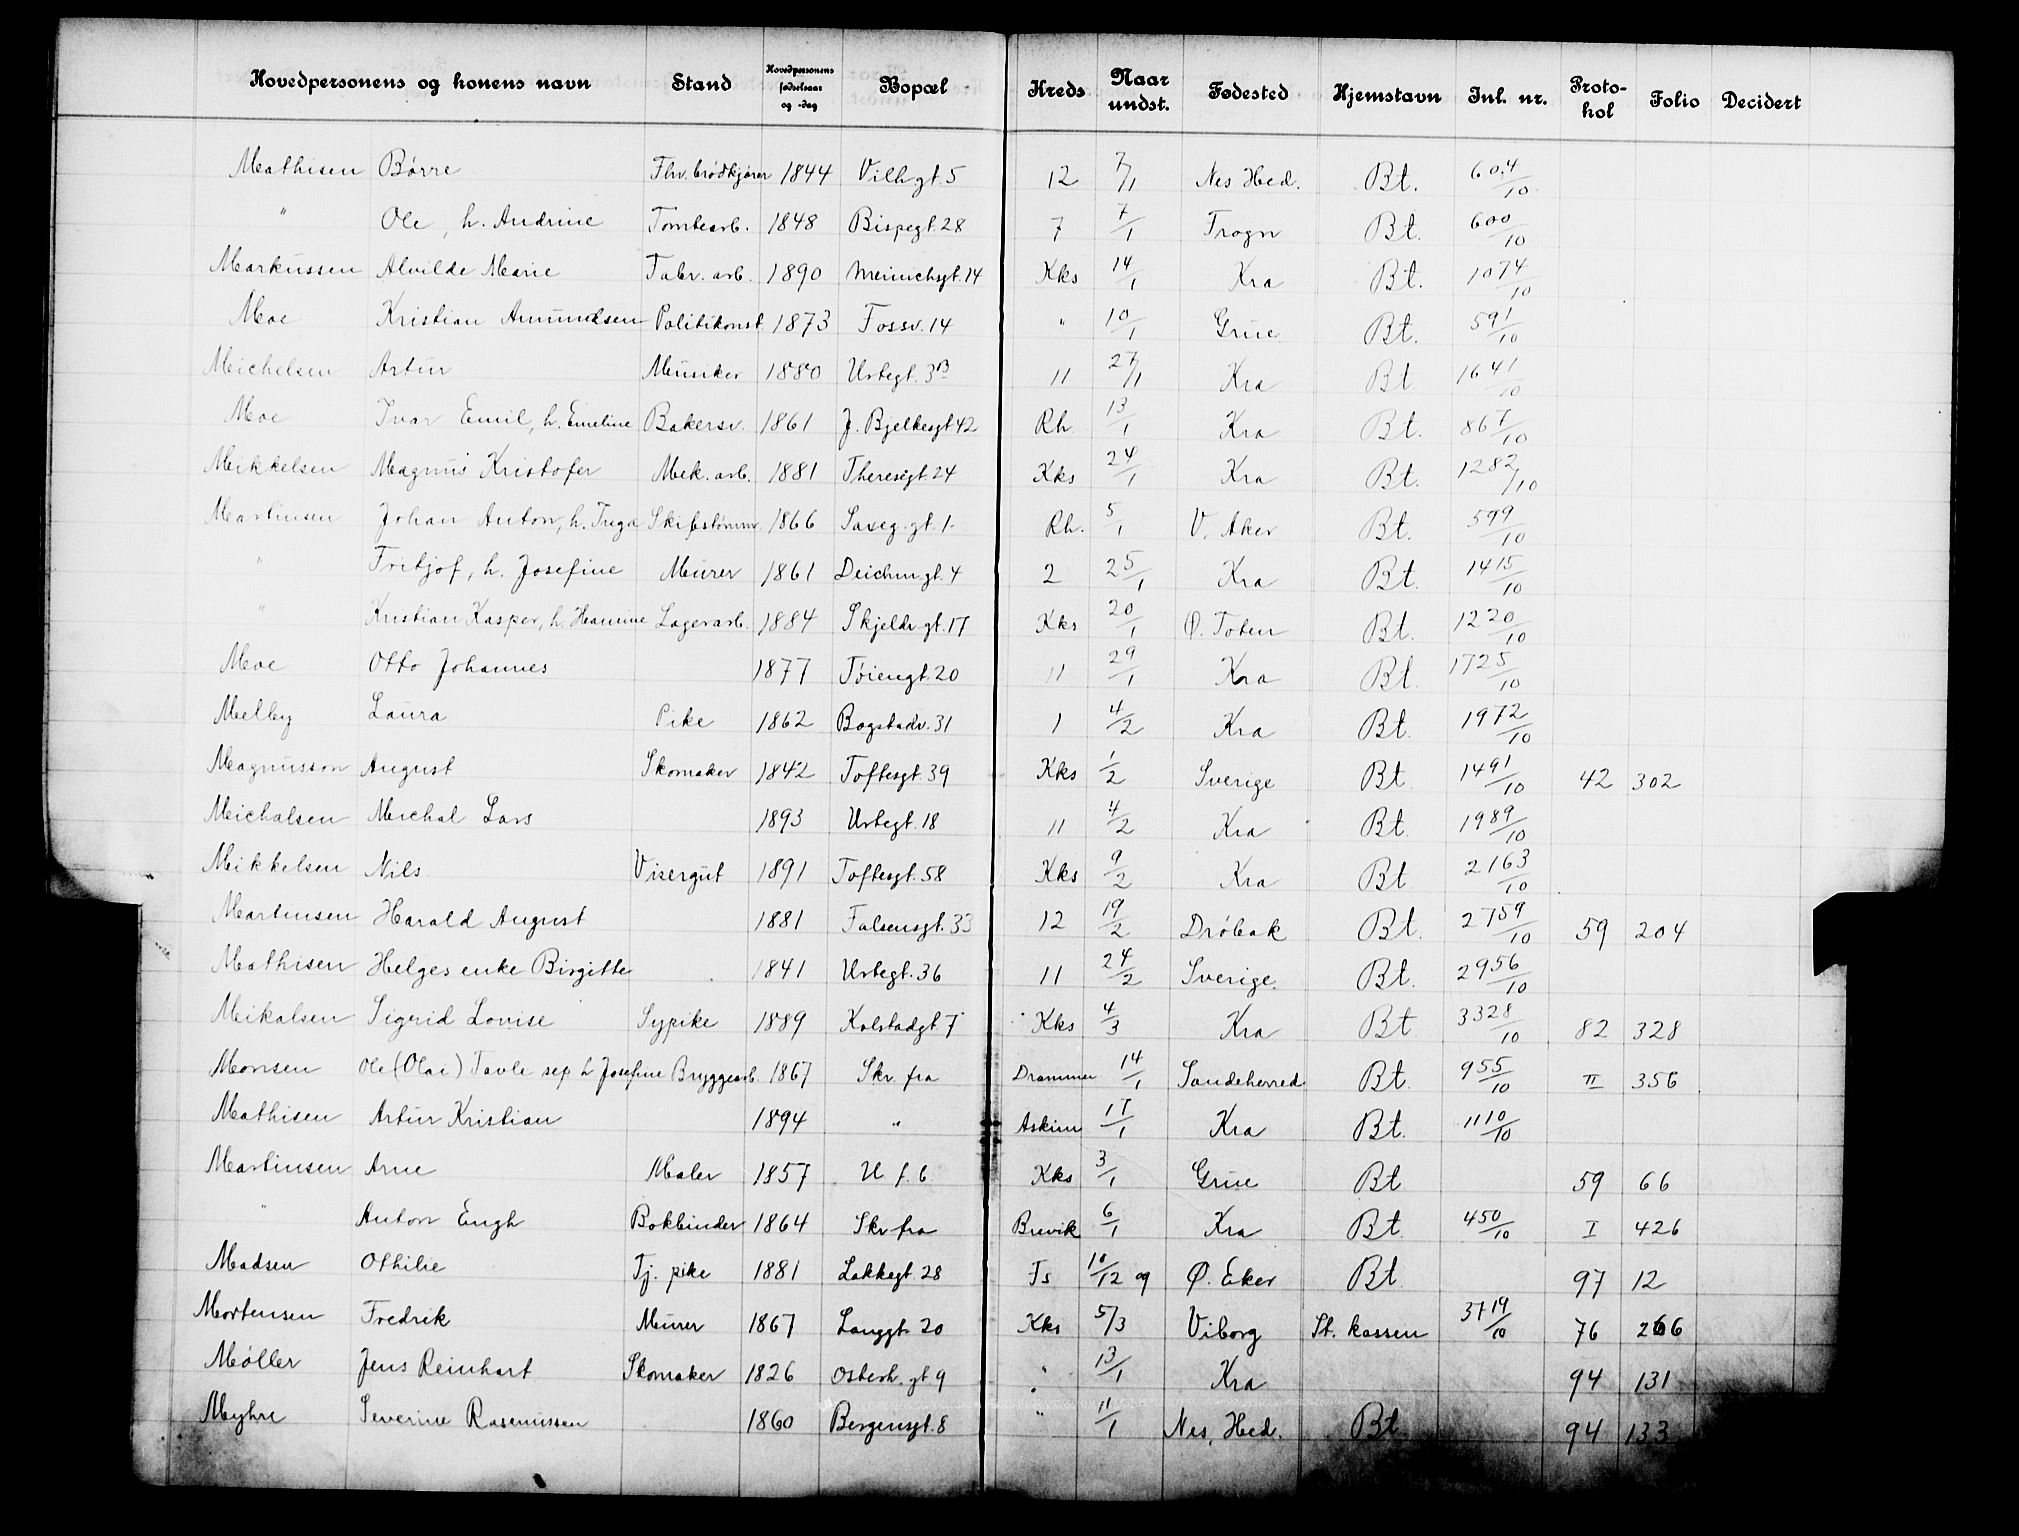 Hovedpersonens og konens navn Stand Hovedpersonens fødselsaar og -dag Bopæl Kreds Naar undst. Fødested Hjemstavn Inl. nr. Protokol Folio Decidert
Mathisen Børre Fhv. brødkjører 1844 Vilh gt. 5 12 7/1 Nes Hed. Bt. 604/10
" Ole, h. Andrine Tomtearb. 1848 Bispegt. 28 7 7/1 Frogn Bt. 600/10
Markussen Alvilde Marie Fabr. arb. 1890 Meinichsgt. 14 Kks 14/1 Kra Bt. 1074/10
Moe Kristian Amundsen Politikonst. 1873 Fossv. 14 " 10/1 Grue Bt. 591/10
Michelsen Artur Musiker 1880 Urtegt. 3B 11 27/1 Kra Bt. 1641/10
Moe Ivar Emil, h. Emeline Bakersv. 1861 J. Bjelkesgt 42 Rh. 13/1 Kra Bt. 867/10
Mikkelsen Magnus Kristofer Mek. arb. 1881 Theresegt. 24 Kks 24/1 Kra Bt. 1282/10
Martinsen Johan Anton, h. Inga Skibstømmr. 1866 Saxeg. gt. 1 Rh. 5/1 V. Aker Bt. 599/10
" Fritjof, h. Josefine Murer 1861 Deichm. gt. 4 2 25/1 Kra Bt. 1415/10
" Kristian Kasper, h. Hannine Lagerarb. 1884 Skjeldr gt. 17 Kks 20/1 Ø. Toten Bt. 1220/10
Moe Otto Johannes 1877 Tøiengt. 20 11 29/1 Kra Bt. 1725/10
Melby Laura Pike 1862 Bogstadv. 31 1 4/2 Kra Bt. 1972/10
Magnusson August Skomaker 1842 Toftesgt. 39 Kks 1/2 Sverige Bt. 1491/10 42 302
Michalsen Michal Lars 1893 Urtegt. 18 11 4/2 Kra Bt. 1989/10
Mikkelsen Nils Visergut 1891 Toftesgt. 58 Kks 9/2 Kra Bt 2163/10
Martinsen Harald August 1881 Falsensgt. 33 12 19/2 Drøbak Bt. 2759/10 59 204
Mathisen Helges enke Birgitte 1841 Urtegt. 36 11 24/2 Sverige Bt. 2956/10
Mikalsen Sigrid Lovise Sypike 1889 Kolstadgt 7 Kks 4/3 Kra Bt 3328/10 82 328
Monsen Ole (Olai) Tavle sep. h Josefine Bryggearb. 1867 Skr. fra Drammen 14/1 Sandeherred Bt. 955/10 II 356
Mathisen Artur Kristian 1894 " Askim 17/1 Kra Bt. 1110/10
Martinsen Arne Maler 1857 U. f. 6 Kks 3/1 Grue Bt 59 66
" Anton Engh Bokbinder 1864 Skr fra Brevik 6/1 Kra Bt. 450/10 I 426
Madsen Othilie Tj. pike 1881 Lakkegt. 28 Fs 10/12 09 Ø. Eker Bt 97 12
Mortensen Fredrik Murer 1867 Langgt. 20 Kks 5/3 Viborg St. kassen 3719/10 76 266
Møller Jens Reinhart Skomaker 1826 Osterh. gt. 9 " 13/1 Kra 94 131
Myhre Severine Rasmussen 1860 Bergensgt. 8 " 11/1 Nes, Hed. Bt. 94 133